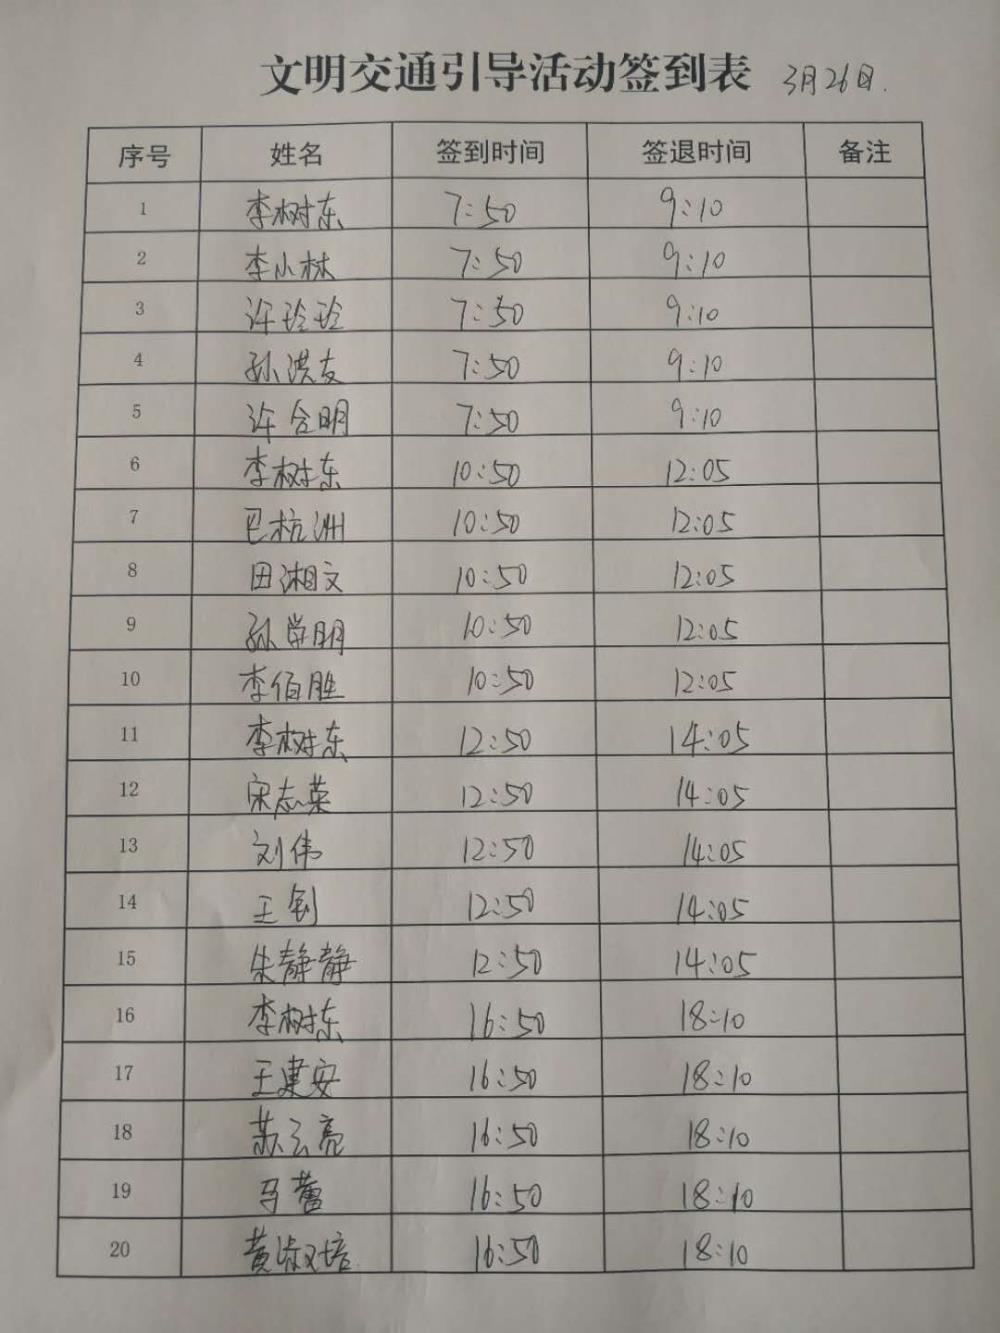 文明交通引导活动签到表 3月26日.
序号 姓名 签到时间 签退时间 备注
1 李树东 7:50 9:10
2 李小林 7:50 9:10
3 许玲玲 7:50 9:10
4 孙洪友 7:50 9:10
5 许合明 7:50 9:10
6 李树东 10:50 12:05
7 巴杭洲 10:50 12:05
8 田湘文 10:50 12:05
9 孙学明 10:50 12:05
10 李伯胜 10:50 12:05
11 李树东 12:50 14:05
12 宋志荣 12:50 14:05
13 刘伟 12:50 14:05
14 王钊 12:50 14:05
15 朱静静 12:50 14:05
16 李树东 16:50 18:10
17 王建安 16:50 18:10
18 苏云亮 16:50 18:10
19 马蕾 16:50 18:10
20 黄淑培 16:50 18:10